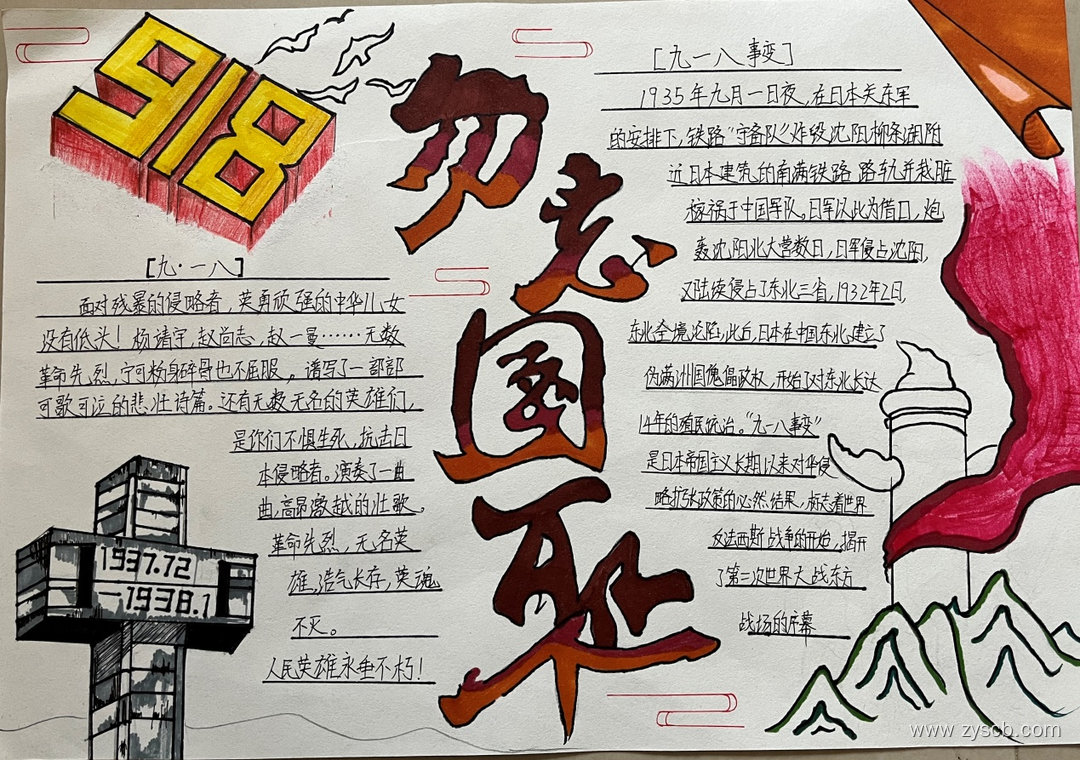 918
勿忘国耻
[九·一八]
面对残暴的侵略者，英勇顽强的中华儿女
没有低头！杨靖宇，赵尚志，赵一曼……无数
革命先烈，宁可粉身碎骨也不屈服。谱写了一部部
可歌可泣的悲壮诗篇。还有无数无名的英雄们，
是你们不惧生死，抗击日
本侵略者。演奏了一曲
曲，高昂激越的壮歌。
革命先烈，无名英
雄，浩气长存，英魂
不灭。
人民英雄永垂不朽！
1937.72
—1938.1
[九一八事变]
1935年九月一日夜，在日本关东军
的安排下，铁路“守备队”炸毁沈阳柳条湖附
近日本建筑的南满铁路路轨并栽脏
嫁祸于中国军队。日军以此为借口，炮
轰沈阳北大营数日，日军侵占沈阳，
又陆续侵占了东北三省，1932年2日，
东北全境沦陷，此后，日本在中国东北建立了
伪满洲国傀儡政权，开始了对东北长达
14年的殖民统治。“九一八事变”
是日本帝国主义长期以来对华侵
略扩张政策的必然结果，标志着世界
反法西斯战争的开始，揭开
了第二次世界大战东方
战场的序幕
www.zyscb.com